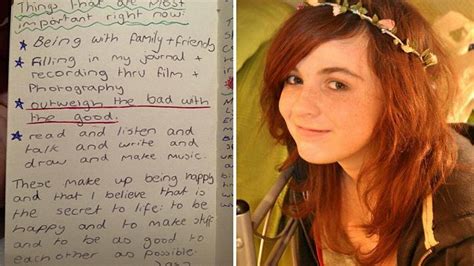 Things that are most
important right now:
★ Being with family + friends
★ Filling in my journal +
recording thru film +
Photography
★ outweigh the bad with
the good.
★ read and listen and
talk and write and
draw and make music.
These make up being happy
and that I believe that is
the secret to life: to be
happy and to make stuff
and to be as good to
each other as possible.